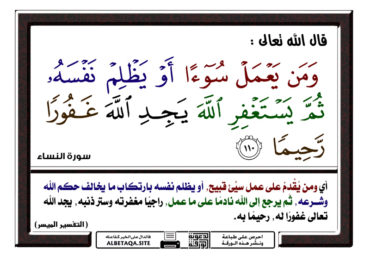 قال الله تعالى :
وَمَن يَعْمَلْ سُوٓءًا أَوْ يَظْلِمْ نَفْسَهُۥ
ثُمَّ يَسْتَغْفِرِ ٱللَّهَ يَجِدِ ٱللَّهَ غَفُورًا
رَّحِيمًا ١١٠
سورة النساء
أي ومن يُقدِمْ على عمل سيِّئ قبيح، أو يظلم نفسه بارتكاب ما يخالف حكم الله
وشرعه، ثم يرجع إلى الله نادمًا على ما عمل، راجيًا مغفرته وستر ذنبه، يجد الله
تعالى غفورًا له، رحيمًا به.
( التفسير الميسر )
احرص على طباعة
ونشر هذه الورقة
فالدال على الخير كفاعله
ALBETAQA.SITE